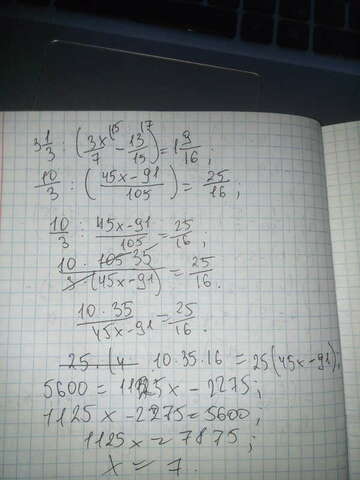 3 1/3 : (3x/7 ^15 - 13/15 ^17) = 1 9/16 ;
10/3 : (45x-91/105) = 25/16 ;
10/3 : 45x-91/105 = 25/16 ;
10 · 105 35/3 (45x-91) = 25/16 .
10 · 35/45x-91 = 25/16 .
25 · (4 10·35·16 = 25(45x-91);
5600 = 1125x - 2275;
1125x - 2275 = 5600;
1125x = 7875;
x = 7.